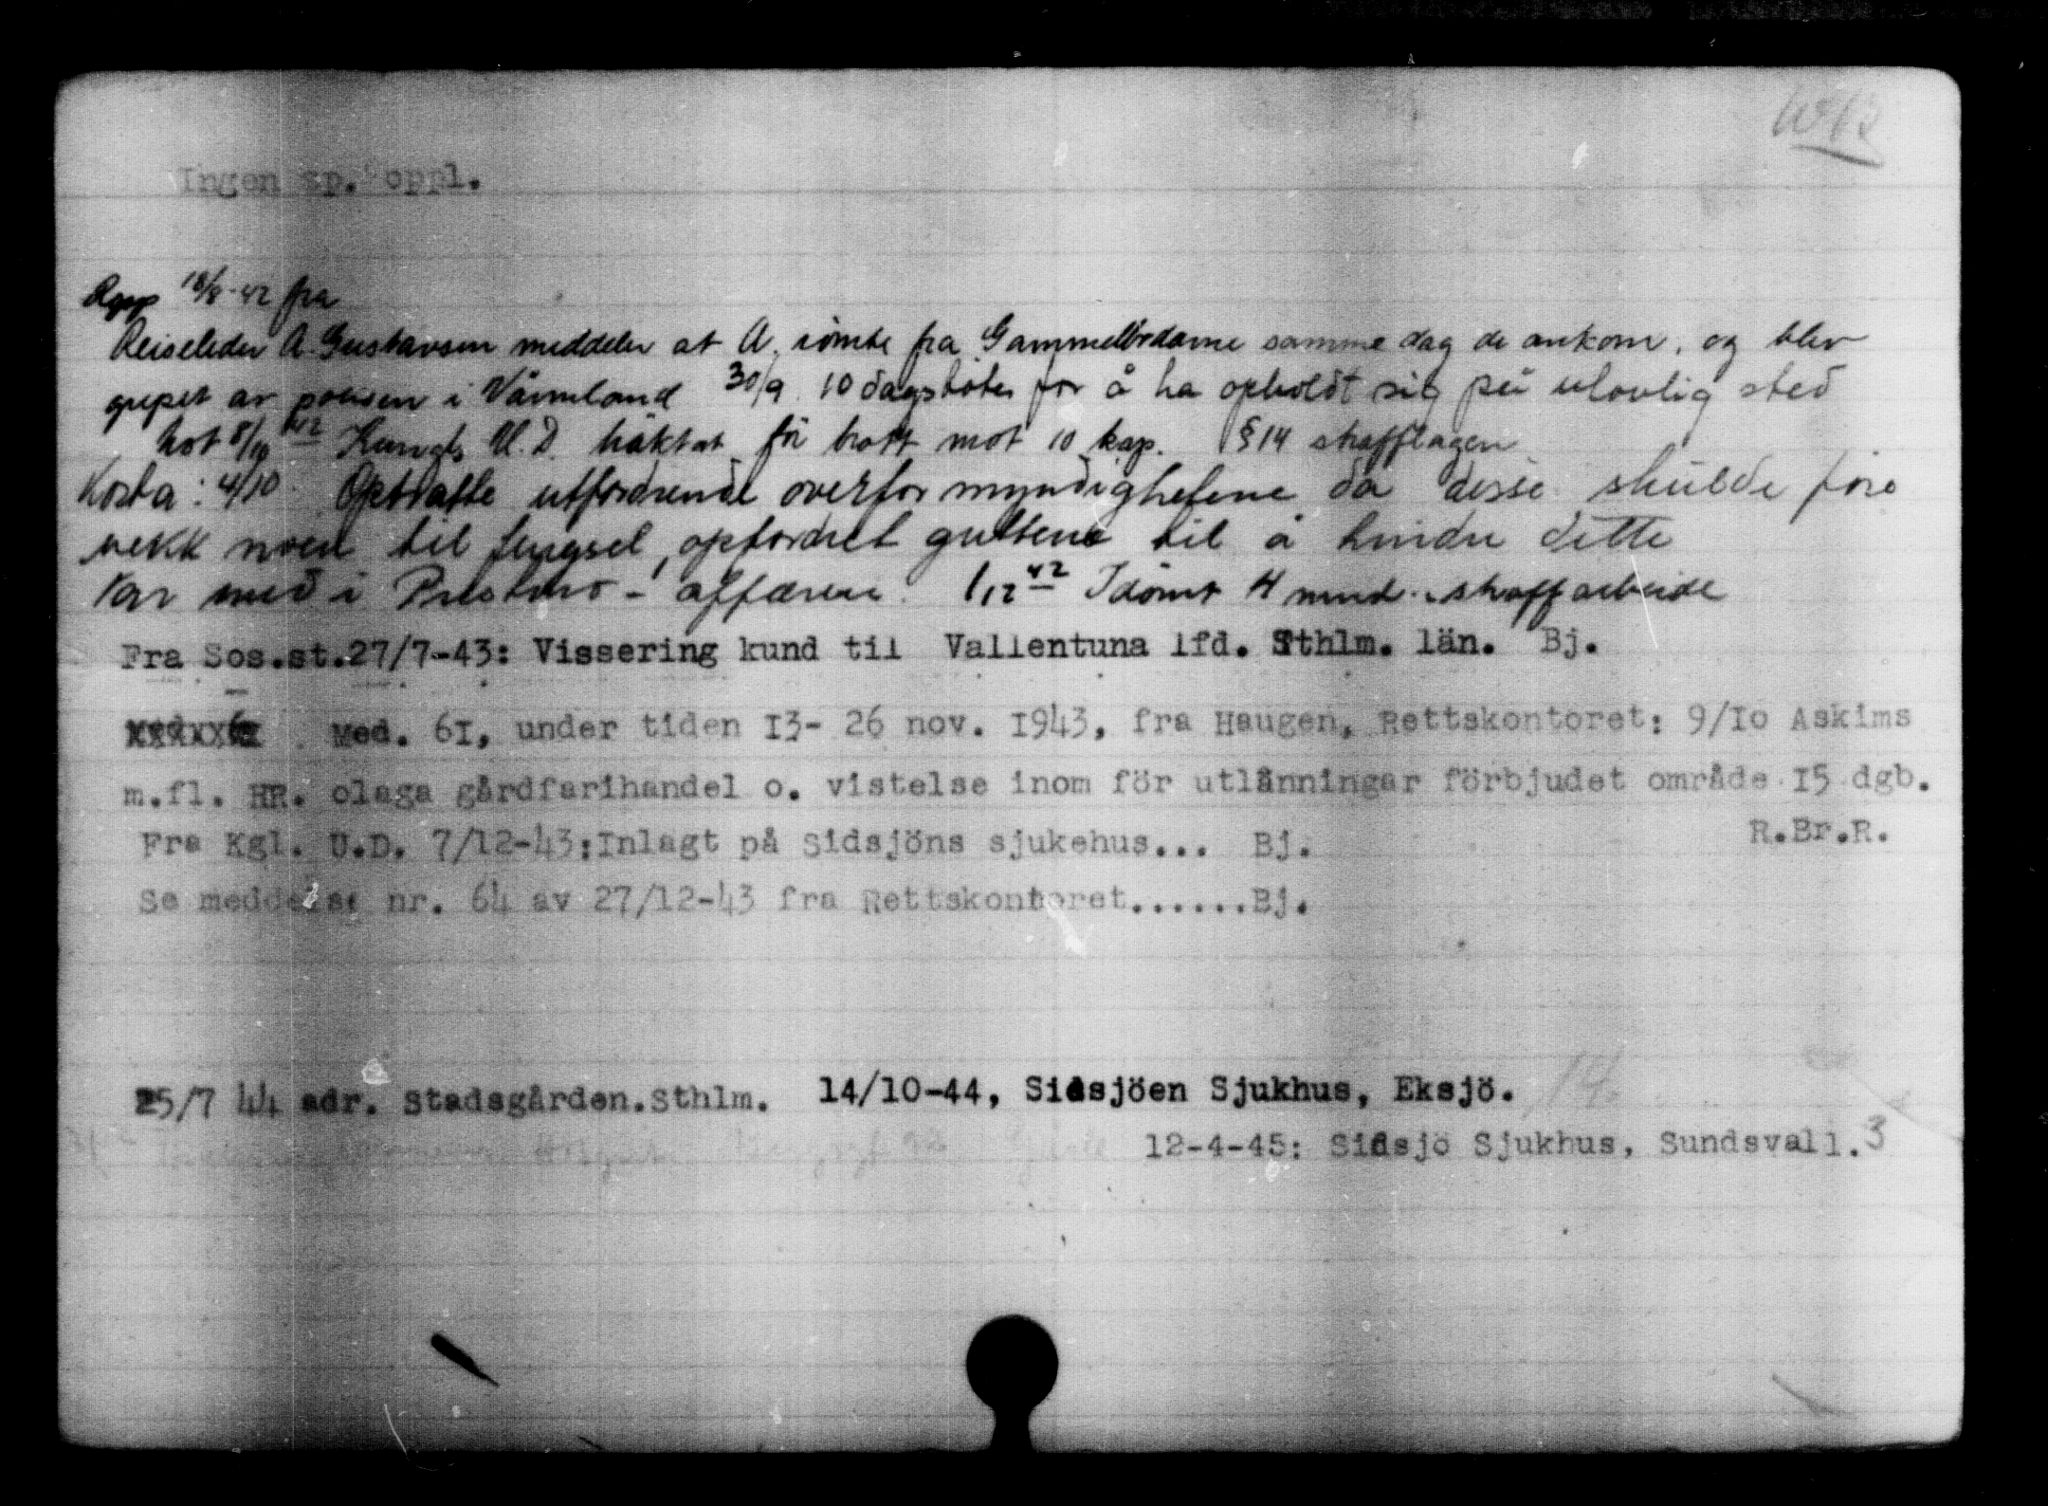 Ingen sp. oppl.
Rapp 18/8-42 fra
Reiseleder A. Gustavsen meddeler at A. rømte fra samme dag de ankom, og blev
grepet av polisen i Värmland 30/9 10 dagsbøter for å ha opholdt sig på ulovlig sted
Not 8/10 42 Kungl. U.D. häktat för brott mot 10 kap. §14 strafflagen
Korta: 4/10. Optratte utfordrende overfor myndighetene da disse skulde føre
vekk noen til fengsel, opfordret guttene til å hindre dette
Var med i - affæren. 1/12 42 Idømt 4 mnd. straffarbeide
Fra Sos.st.27/7-43: Vissering kund til Vallentuna lfd. Sthlm. län. Bj.
Med. 61, under tiden 13- 26 nov. 1943, fra Haugen, Rettskontoret: 9/10 Askims
m.fl. HR. olaga gårdfarihandel o. vistelse inom för utlänningar förbjudet område 15 dgb.
R.Br.R.
Fra Kgl. U.D. 7/12-43:Inlagt på Sidsjöns sjukehus... Bj.
Se meddelse nr. 64 av 27/12-43 fra Rettskontoret......Bj.
25/7 44 adr. Stadsgården.Sthlm. 14/10-44, Sidsjöen Sjukhus, Eksjö. 14.
12-4-45: Sidsjö Sjukhus, Sundsvall. 3